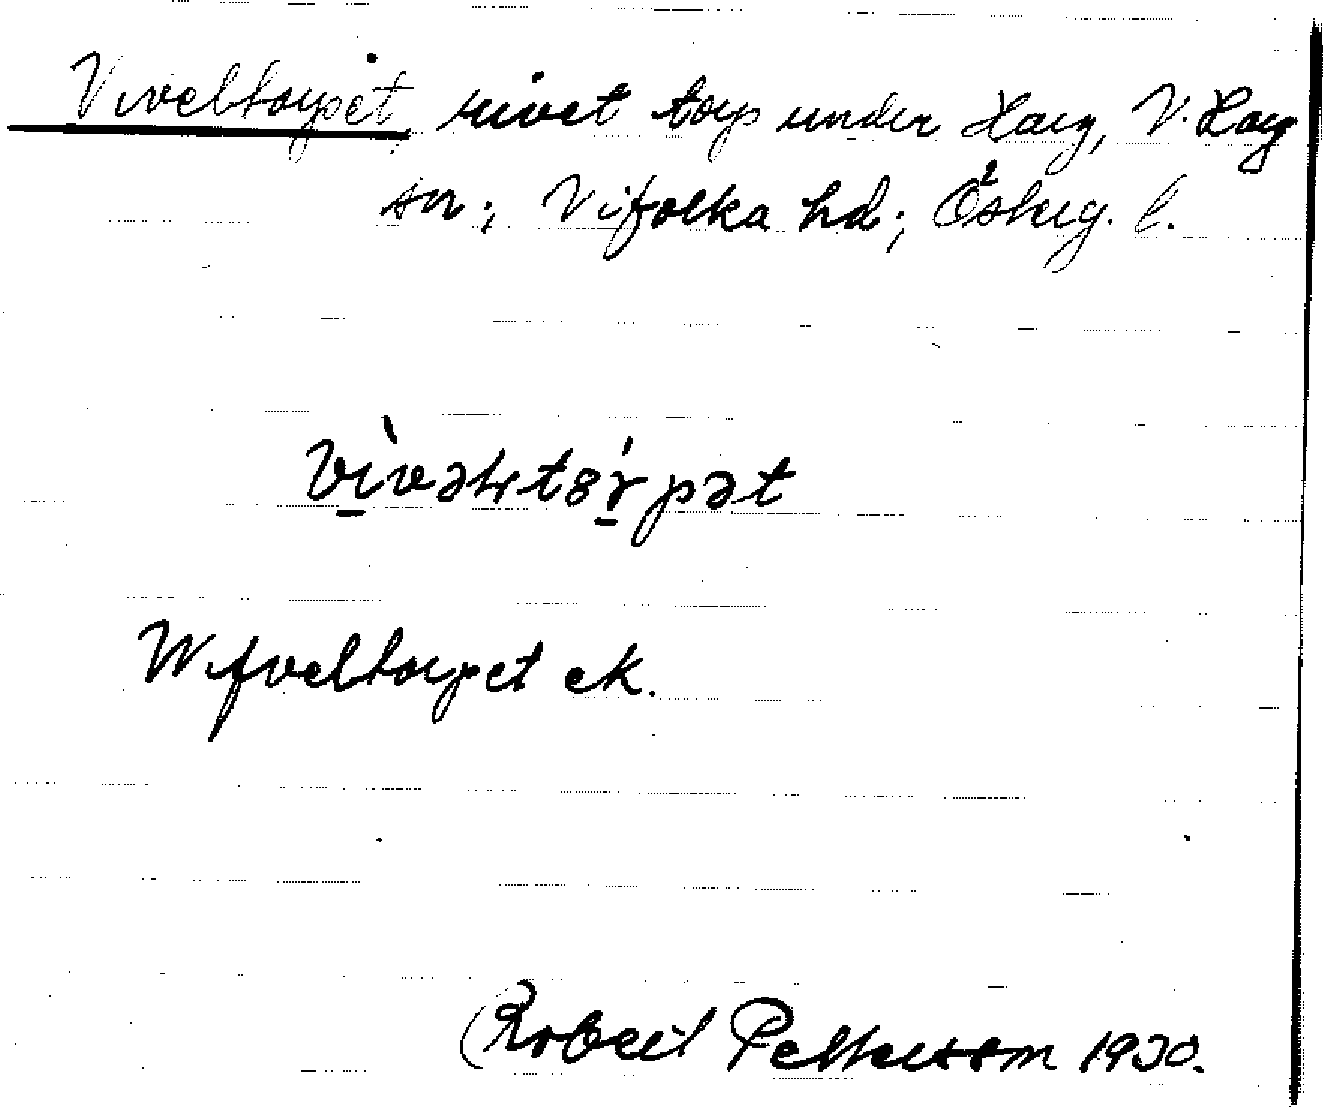 Viveltorpet, rivet torp under Harg, V. Harg
sn; Vifolka hd; Österg. l.
vì̠vəɬtȣɍ̠́pət
Wifveltorpet ek.
Robert Petterson 1930.